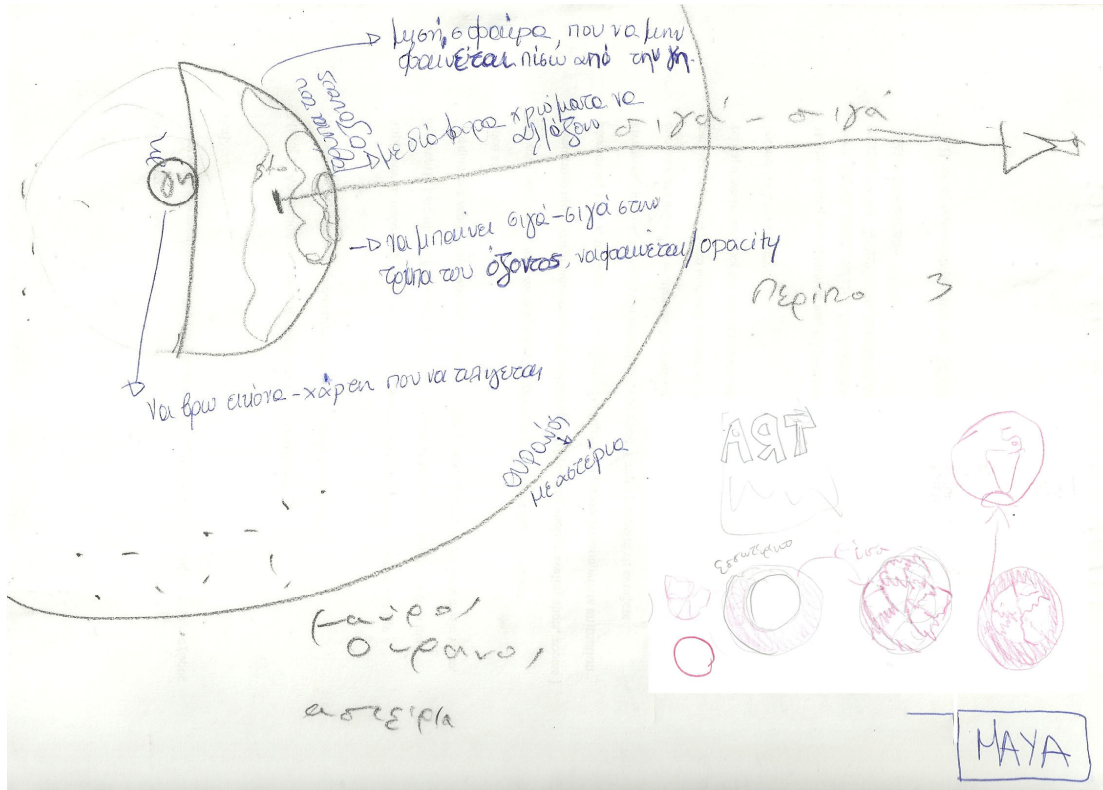 μισή σφαίρα, που να μην
φαίνεται πίσω από την γη.
τρύπα του
όζοντος
με διάφορα χρώματα να
αλλάζουν
σιγά - σιγά
γη
γη
να μπαίνει σιγά-σιγά στην
τρύπα του όζοντος, να φαίνεται/opacity
Περίπο 3
Να βρω εικόνα-χάρτη που να τυλίγεται
ουρανός
με αστέρια
TRA
εσωτερικό
μαύρο,
ουρανο,
αστείρια
MAYA